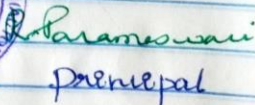 R. Parameswari
Principal